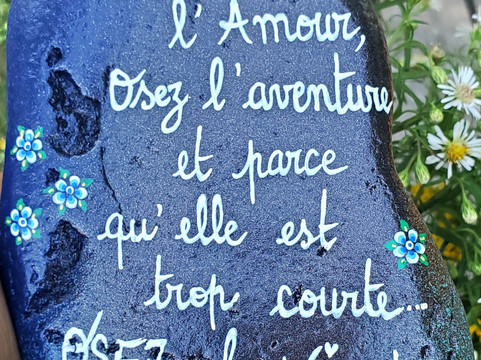 l'Amour,
Osez l'aventure
et parce
qu'elle est
trop courte...
OSEZ